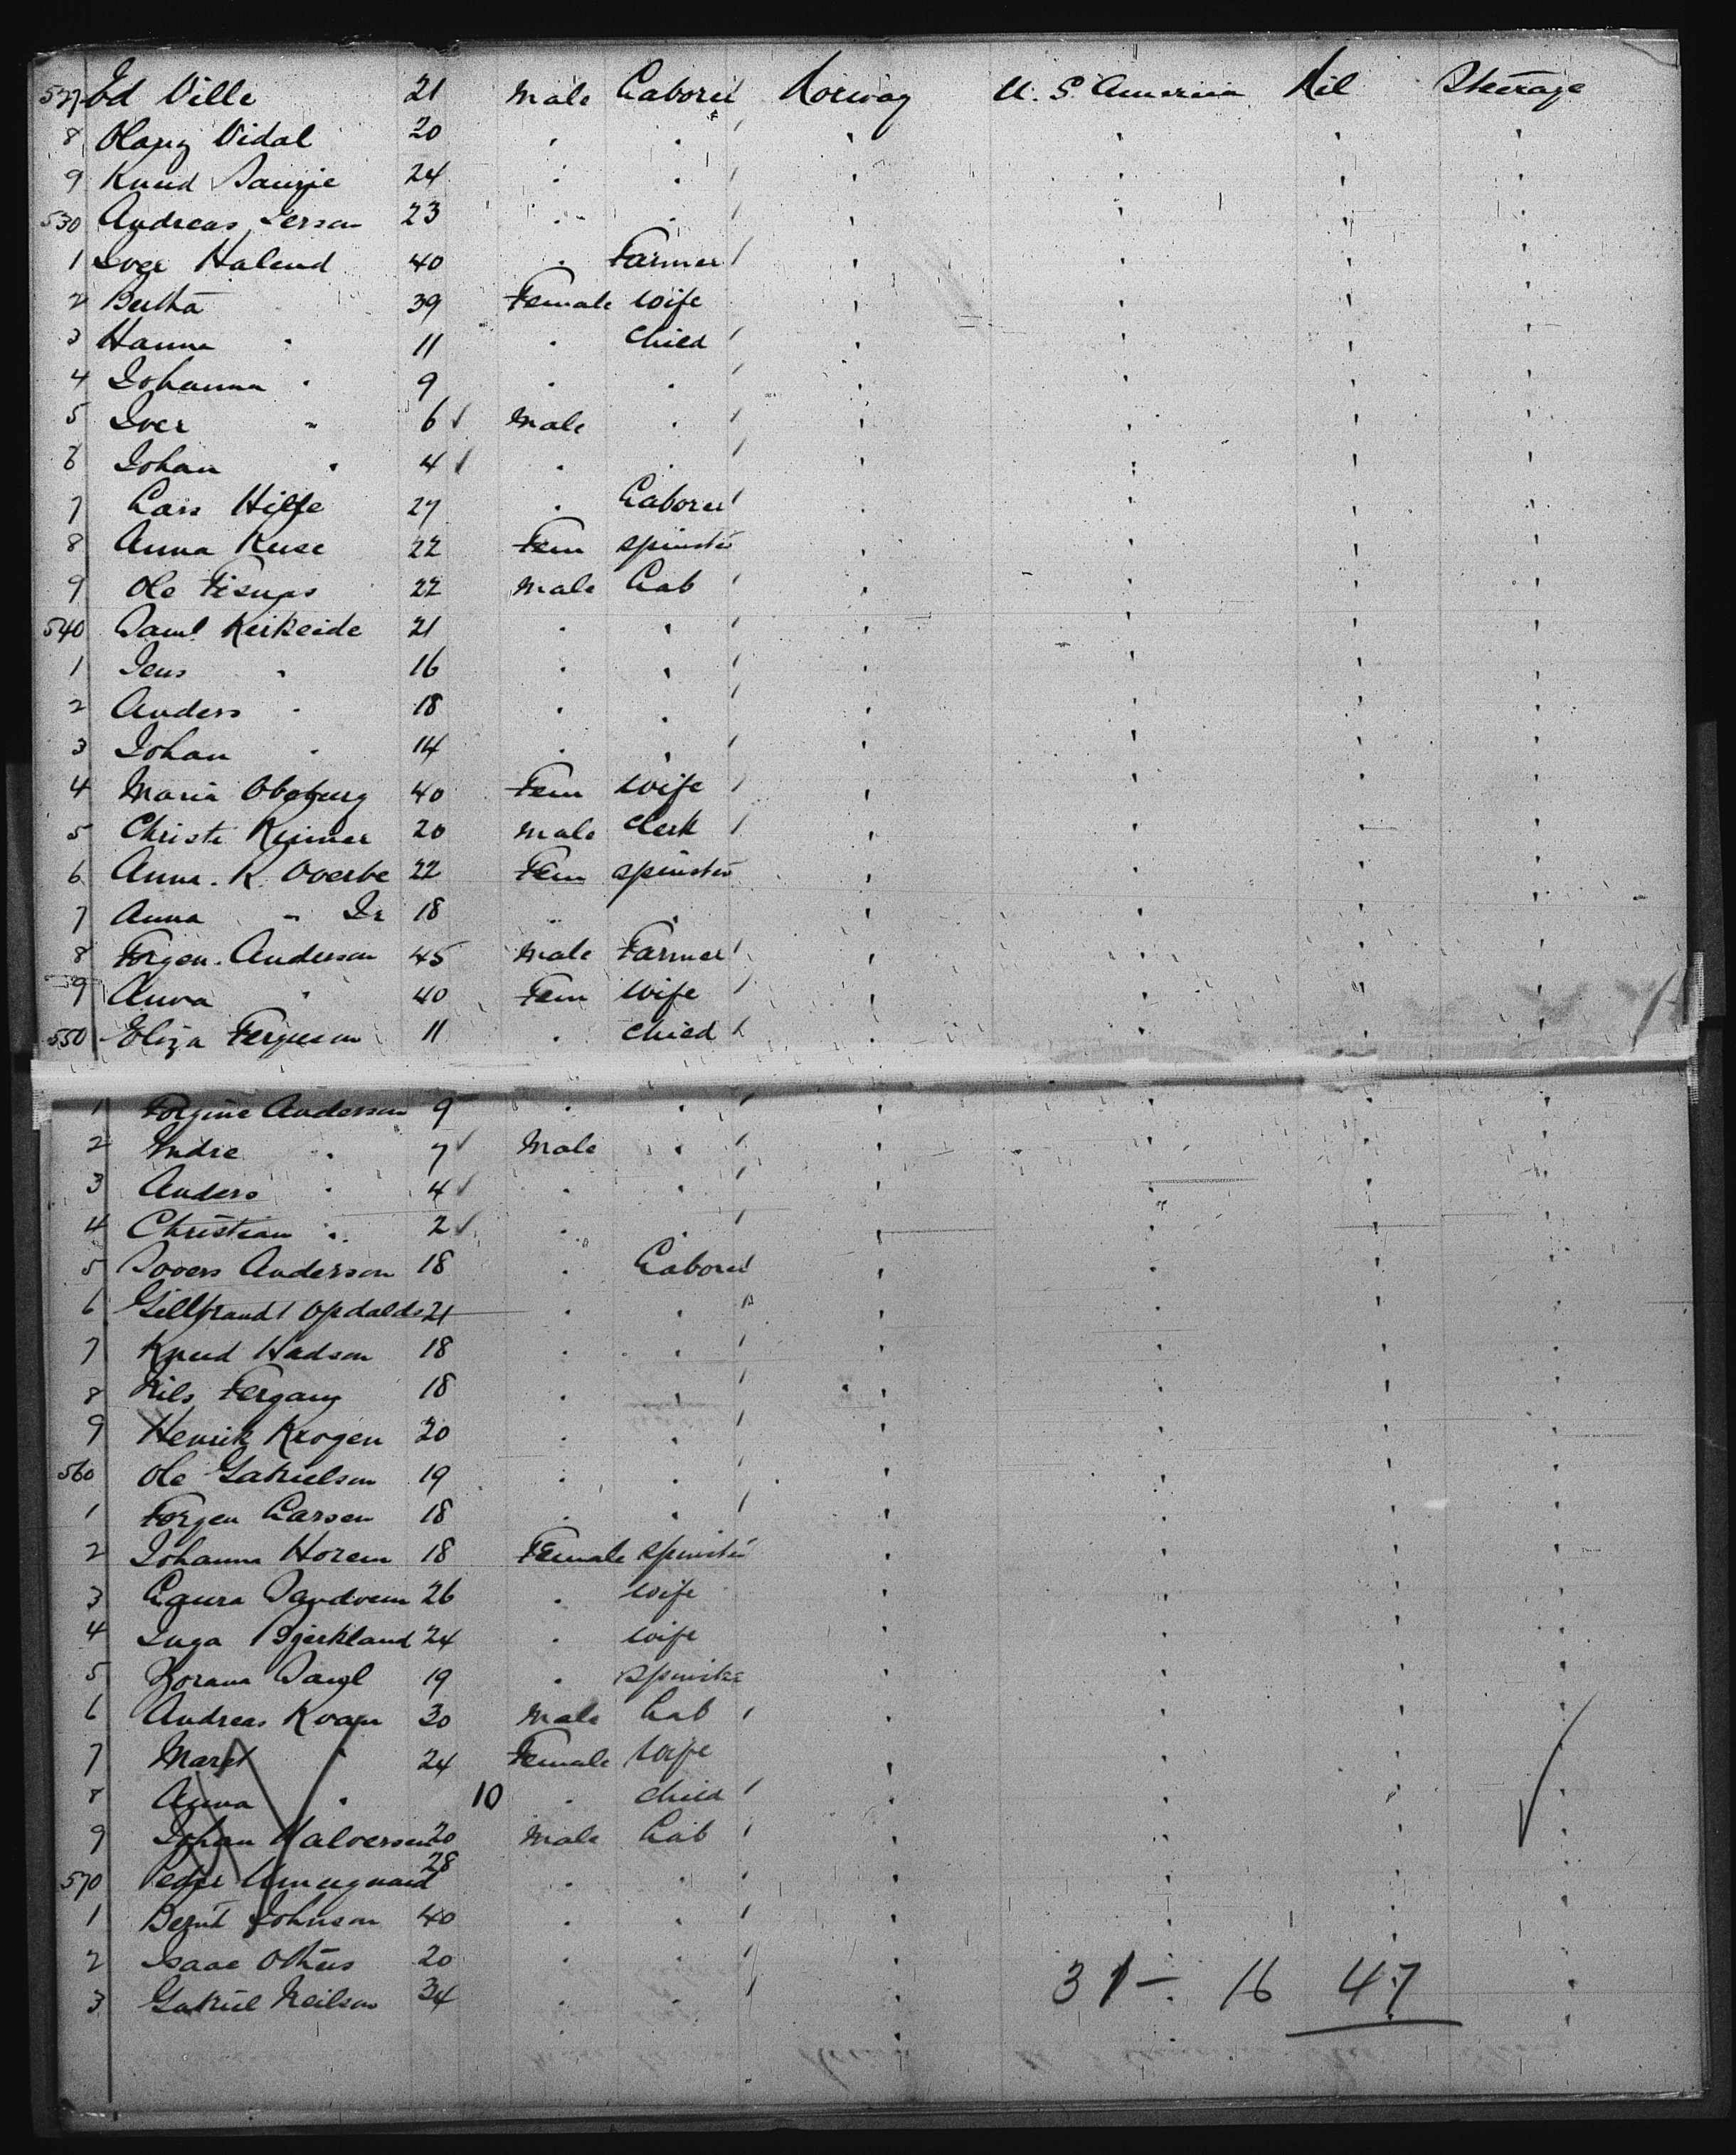 527 Ed Ville 21 Male Laborer Norway U. S. America Nil Steerage
8 Vidal 20
9 Knud 24
530 Andreas Ierson 23
1 Iver Halend 40 Farmer
2 Bertha 39 Female Wife
3 Hanna " 11 Child
4 Johanna " 9
5 Iver " 6 Male
6 Johan " 4
7 Lars Hilse 27 Laborer
8 Anna Ruse 22 Fem Spinster
9 Ole 22 Male Lab
540 Saml. Kirkeide 21
1 Jens " 16
2 Anders " 18
3 Johan " 14
4 Maria 40 Fem Wife
5 Christ 20 Male Clerk
6 Anna. K. Overbe 22 Fem Spinster
7 Anna " Jr 18
8 Torgen. Anderson 45 Male Farmer
9 Anna " 40 Fem Wife
550 Eliza Ferguson 11 Child
1 Torgine Anderson 9
2 Indre " 7 Male
3 Anders " 4
4 Christian " 2
5 Sovers Anderson 18 Laborer
6 Gillbrandt Opdalds 21
7 Knud Hadson 18
8 Nils Tergang 18
9 Henrik Krogen 20
560 Ole Gabrielson 19
1 Torgen Larsen 18
2 Johanna Horem 18 Female Spinster
3 Laura Sandvem 26 Wife
4 Inga Bjerkland 24 Wife
5 19 Spinster
6 Andreas Kvam 30 Male Lab
7 Maret " 24 Female Wife
8 Anna " 10 Child
9 Johan Halversen 20 Male Lab
570 Peder 28
1 Bernt Johnson 40
2 Isaac 20
3 Gabriel Neilson 34
31 - 16 47